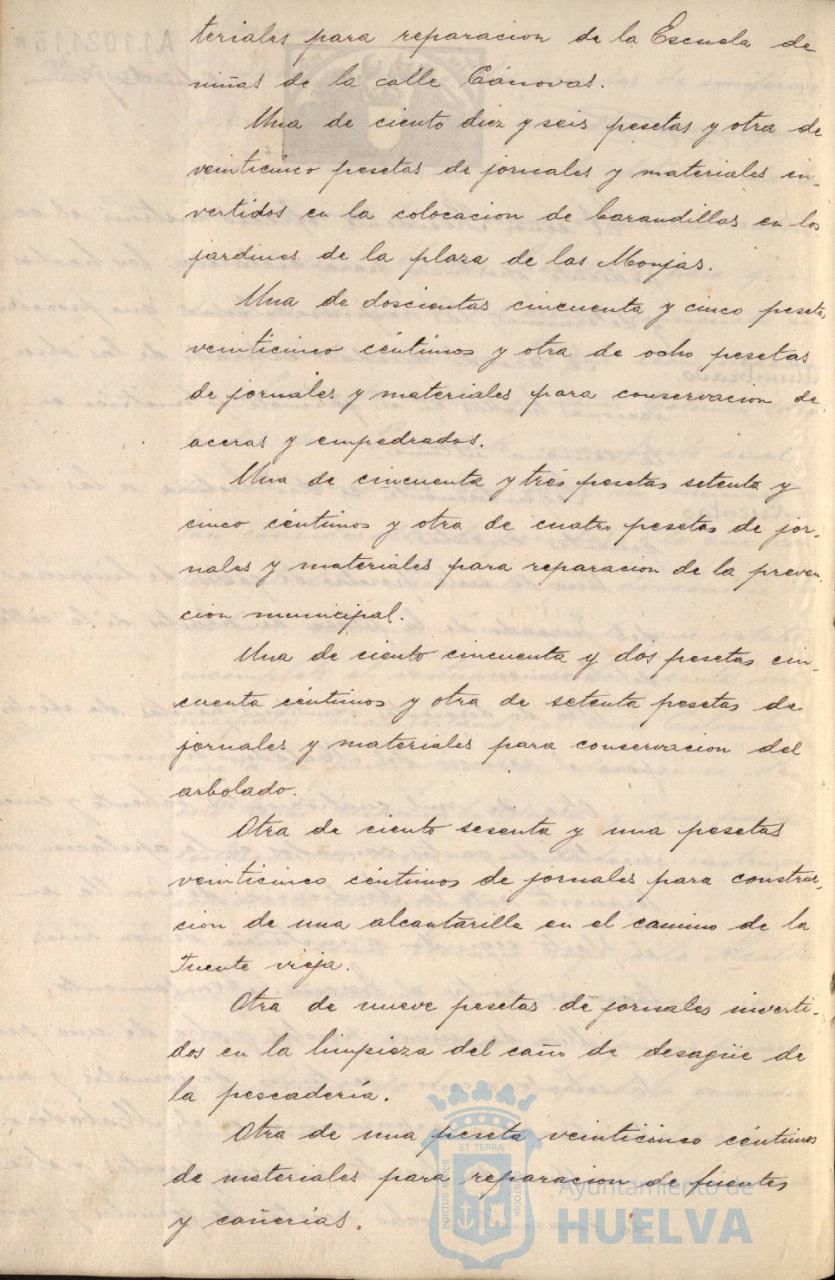 teriales para reparacion de la Escuela de
niñas de la calle Cánovas.
Una de ciento diez y seis pesetas y otra de
veinticinco pesetas de jornales y materiales in-
vertidos en la colocacion de barandillas en los
jardines de la plaza de las Monjas.
Una de doscientas cincuenta y cinco pesetas
veinticinco céntimos y otra de ocho pesetas
de jornales y materiales para conservacion de
aceras y empedrados.
Una de cincuenta y tres pesetas setenta y
cinco céntimos y otra de cuatro pesetas de jor-
nales y materiales para reparacion de la preven-
cion municipal.
Una de ciento cincuenta y dos pesetas cin-
cuenta céntimos y otra de setenta pesetas de
jornales y materiales para conservacion del
arbolado.
Otra de ciento sesenta y una pesetas
veinticinco céntimos de jornales para construc-
cion de una alcantarilla en el camino de la
Fuente vieja.
Otra de nueve pesetas de jornales inverti-
dos en la limpieza del caño de desagüe de
la pescadería.
Otra de una peseta veinticinco céntimos
de materiales para reparacion de fuentes
y cañerias.
Ayuntamiento de
HUELVA
PORTUS MARIS
ET TERRA
CUSTODIA